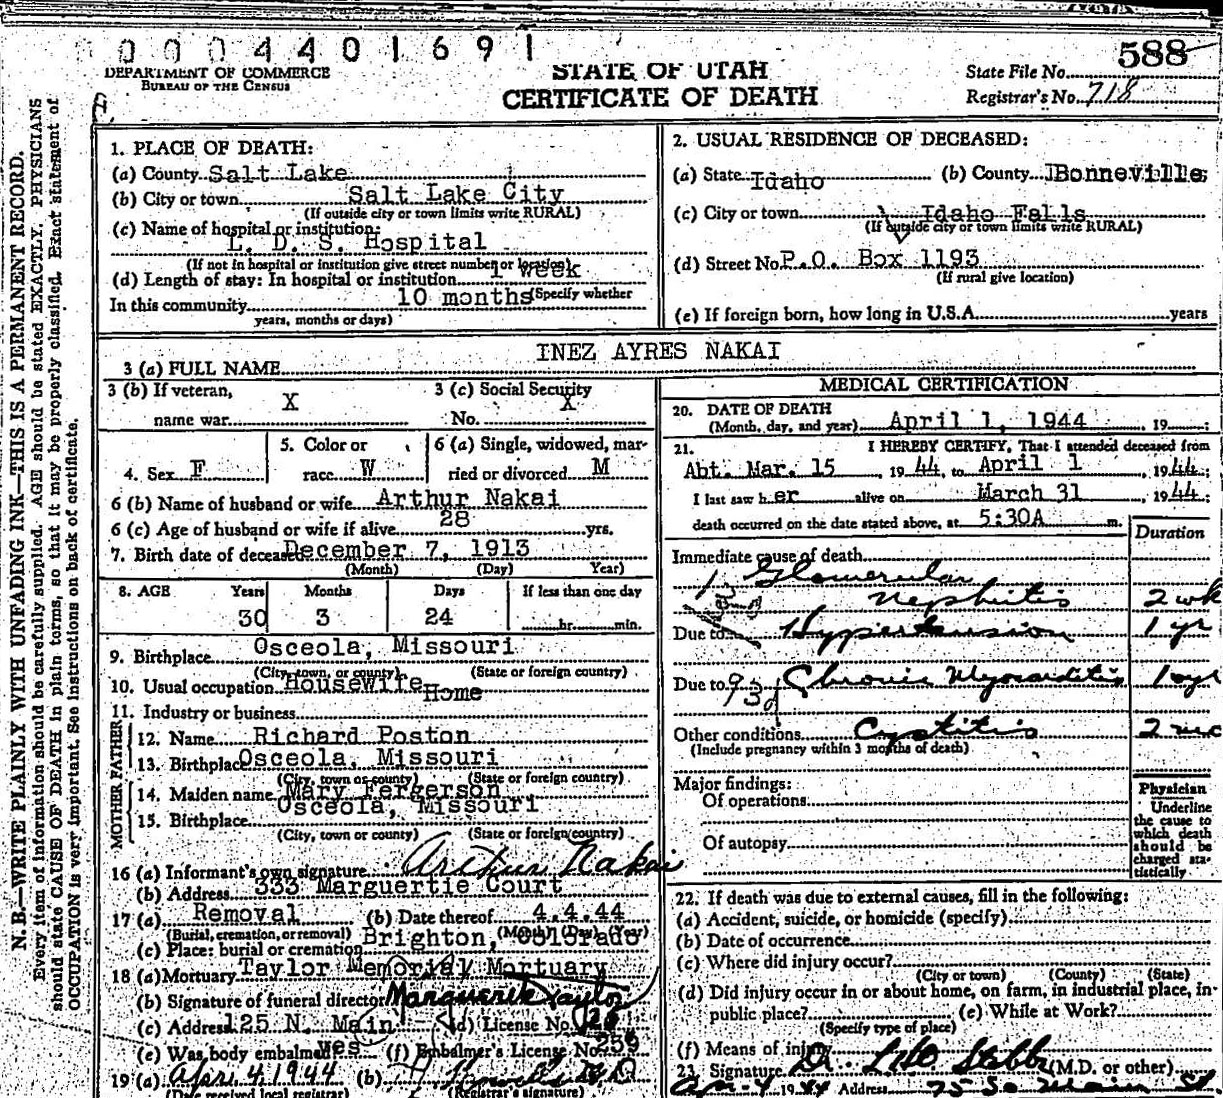 0004401691
588
DEPARTMENT OF COMMERCE
BUREAU OF THE CENSUS
STATE OF UTAH
CERTIFICATE OF DEATH
State File No.
Registrar's No. 718
N. B.—WRITE PLAINLY WITH UNFADING INK—THIS IS A PERMANENT RECORD.
Every item of information should be carefully supplied. AGE should be stated EXACTLY. PHYSICIANS
should state CAUSE OF DEATH in plain terms, so that it may be properly classified. Exact statement of
OCCUPATION is very important. See instructions on back of certificate.
1. PLACE OF DEATH:
(a) County Salt Lake
(b) City or town Salt Lake City
(If outside city or town limits write RURAL)
(c) Name of hospital or institution:
L. D. S. Hospital
(If not in hospital or institution give street number or location)
(d) Length of stay: In hospital or institution 1 week
In this community 10 months (Specify whether
years, months or days)
2. USUAL RESIDENCE OF DECEASED:
(a) State Idaho (b) County Bonneville
(c) City or town Idaho Falls
(If outside city or town limits write RURAL)
(d) Street No. P.O. Box 1193
(If rural give location)
(e) If foreign born, how long in U.S.A. years
3 (a) FULL NAME INEZ AYRES NAKAI
3 (b) If veteran, name war X
3 (c) Social Security No. X
4. Sex F
5. Color or race W
6 (a) Single, widowed, married or divorced M
6 (b) Name of husband or wife Arthur Nakai
6 (c) Age of husband or wife if alive 28 yrs.
7. Birth date of deceased December 7, 1913
(Month) (Day) Year)
8. AGE Years Months Days If less than one day
30 3 24 hr. min.
9. Birthplace Osceola, Missouri
(City, town, or county) (State or foreign country)
10. Usual occupation Housewife
Home
11. Industry or business
FATHER
12. Name Richard Poston
13. Birthplace Osceola, Missouri
(City, town or county) (State or foreign country)
MOTHER
14. Maiden name Mary Fergerson
15. Birthplace Osceola, Missouri
(City, town or county) (State or foreign country)
16 (a) Informant's own signature Arthur Nakai
(b) Address 333 Marguertie Court
17 (a) Removal (b) Date thereof 4.4.44
(Burial, cremation, or removal) (Month) (Day) (Year)
(c) Place: burial or cremation Brighton, Colorado
18 (a) Mortuary Taylor Memorial Mortuary
(b) Signature of funeral director Marguerite Taylor
(c) Address 125 N. Main (d) License No.
(e) Was body embalmed yes (f) Embalmer's License No.
19 (a) Apr. 4, 1944 (b)
(Date received local registrar) (Registrar's signature)
MEDICAL CERTIFICATION
20. DATE OF DEATH
(Month, day, and year) April 1, 1944, 19 ;
21. I HEREBY CERTIFY, That I attended deceased from
Abt. Mar. 15, 1944, to April 1, 1944;
I last saw her alive on March 31, 1944;
death occurred on the date stated above, at 5:30A m.
Duration
Immediate cause of death
1 Glomerular
Nephritis 2 wk
Due to Hypertension 1 yr
Due to 93d Chronic Myocarditis 1 yr
Other conditions Cystitis 2 mo
(Include pregnancy within 3 months of death)
Major findings:
Of operations
Of autopsy
Physician
Underline
the cause to
which death
should be
charged sta-
tistically.
22. If death was due to external causes, fill in the following:
(a) Accident, suicide, or homicide (specify)
(b) Date of occurrence
(c) Where did injury occur?
(City or town) (County) (State)
(d) Did injury occur in or about home, on farm, in industrial place, in-
public place? (e) While at Work?
(Specify type of place)
(f) Means of injury
23. Signature Dr. (M.D. or other)
Apr-4 1944 Address 75 So Main St.